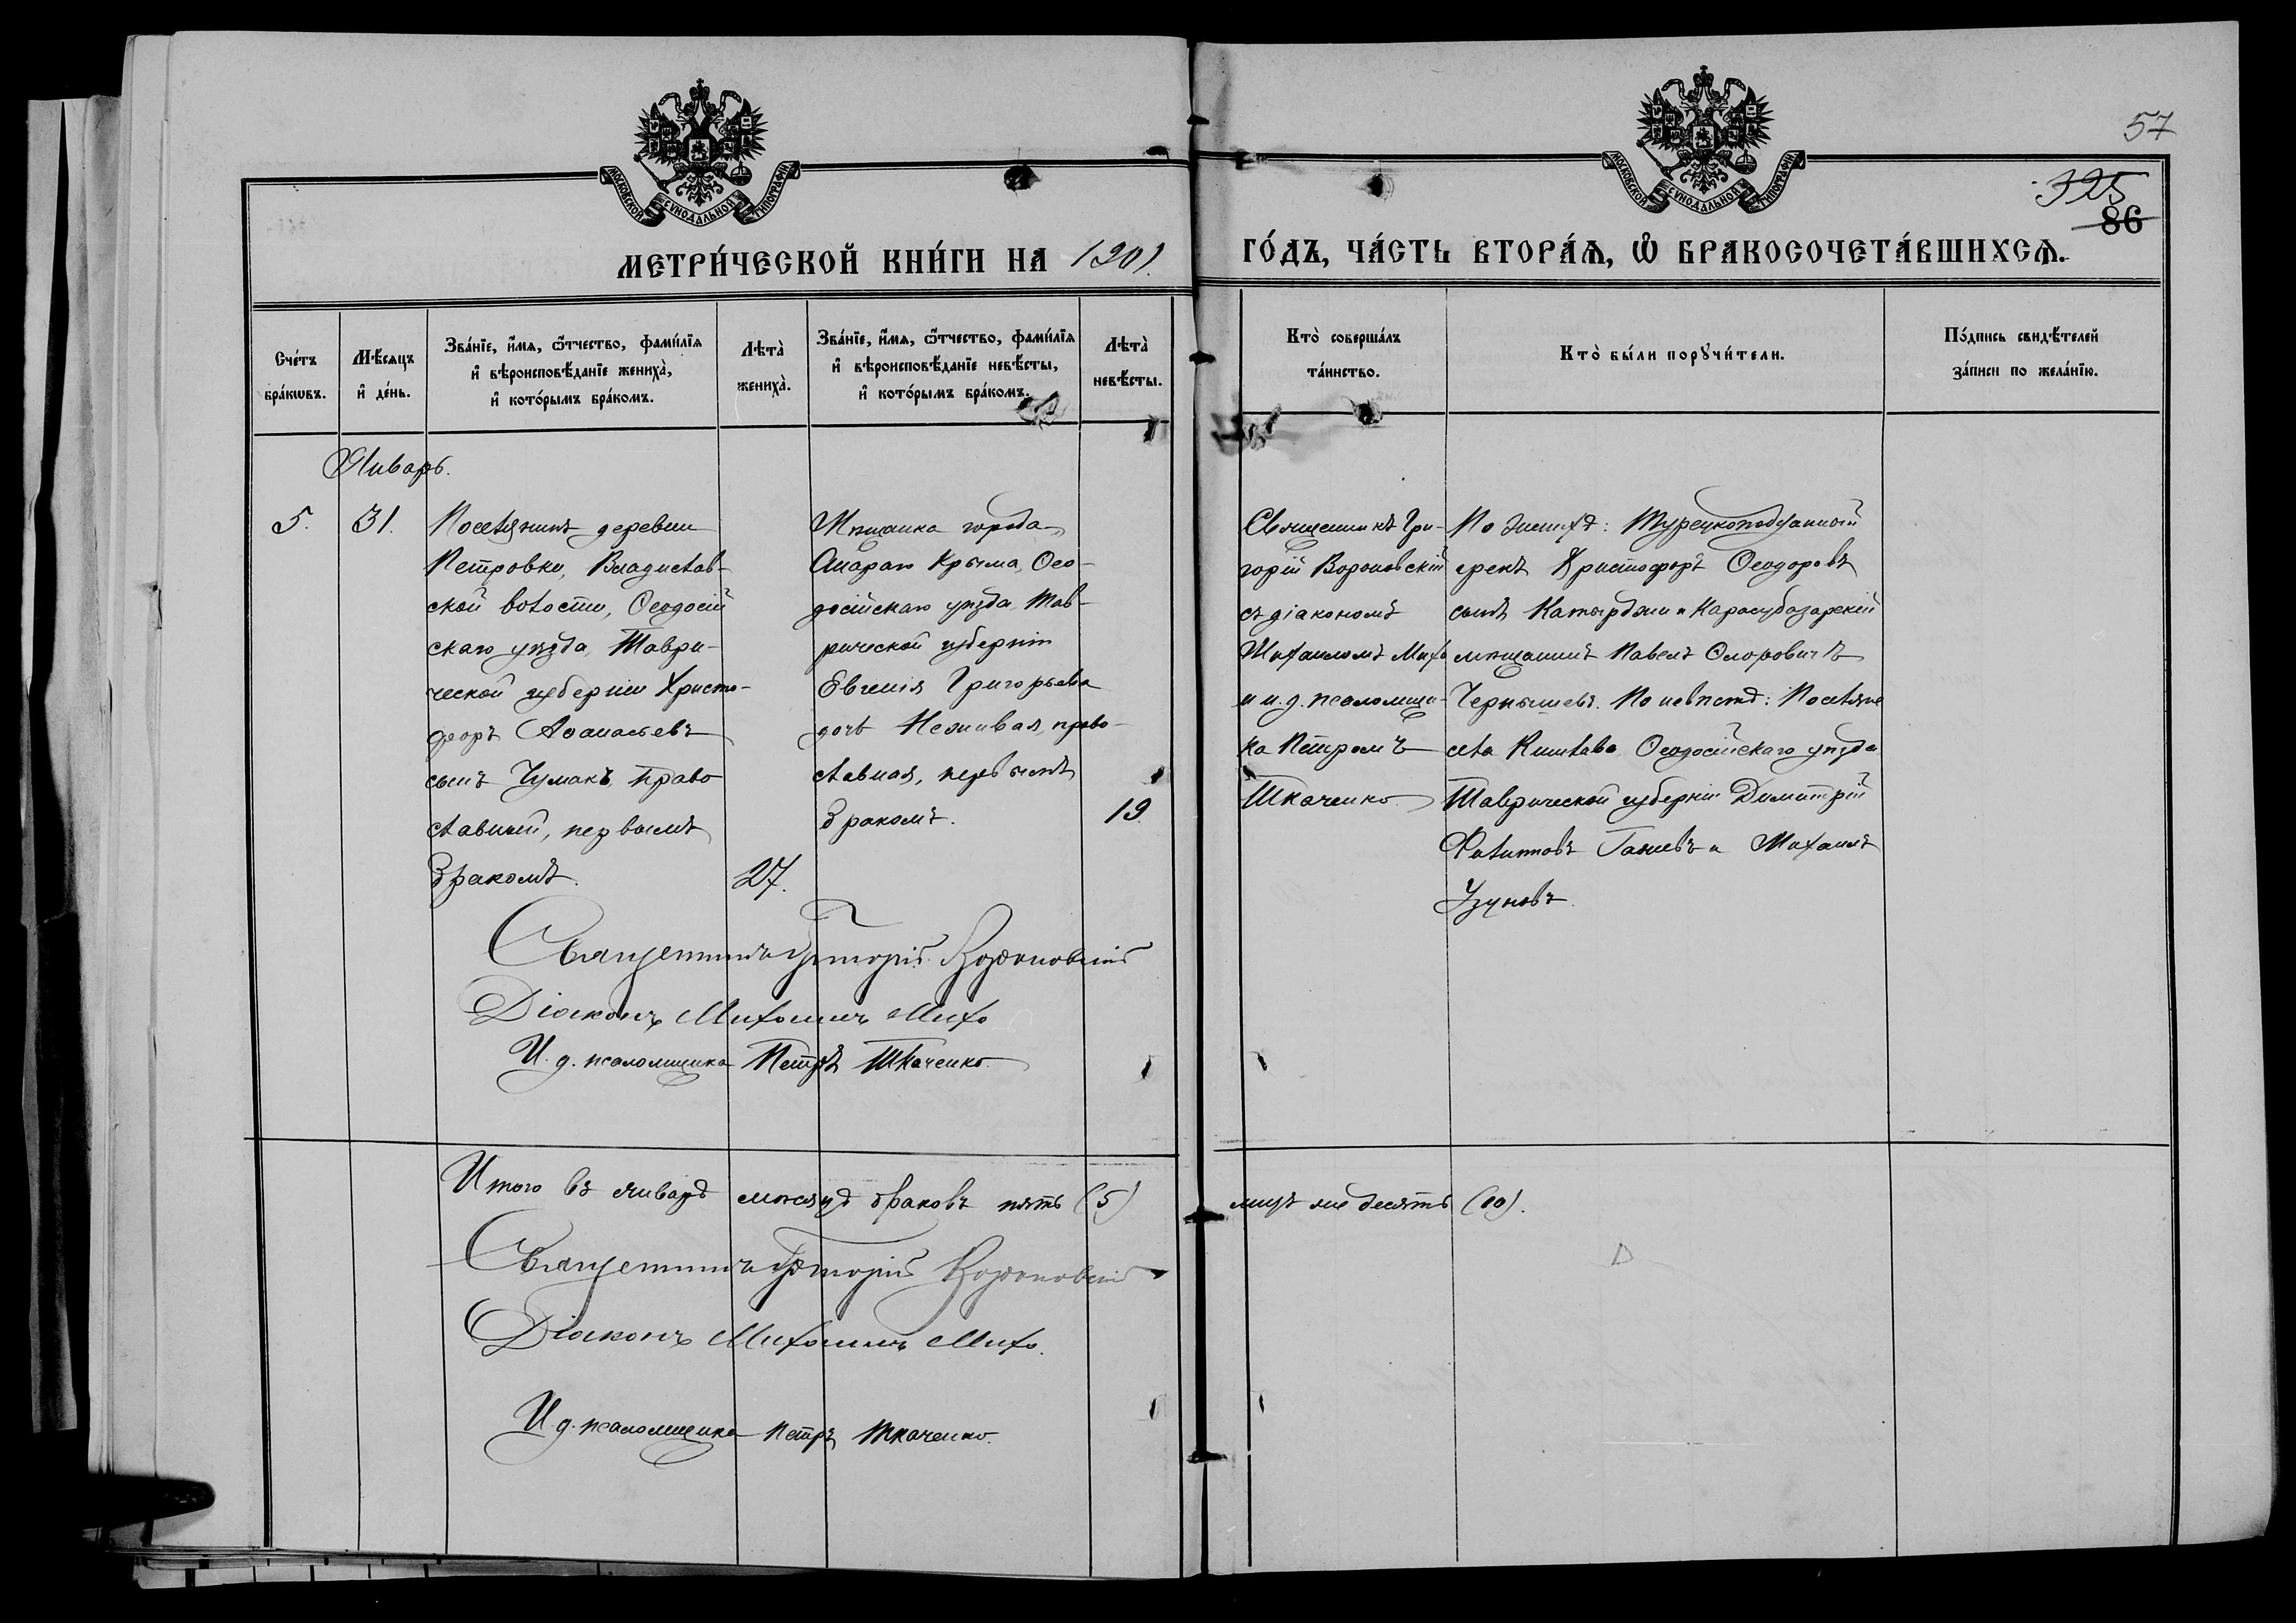 57
325
86
МОСКОВСКОЙ СУНОДАЛЬНОЙ ТИПОГРАФІИ
МОСКОВСКОЙ СУНОДАЛЬНОЙ ТИПОГРАФІИ
МЕТРИ́ЧЕСКОЙ КНИ́ГИ НА 1901.
ГО́ДЪ, ЧА́СТЬ ВТОРА́Ѧ, Ѡ БРАКОСОЧЕТА́ВШИХСѦ.
Сче́тъ
бра́кѡвъ.
Мѣ́сѧцъ
и҆ де́нь.
Зва́нїе, и҆́мѧ, ѻ҆́тчество, фами́лїѧ
и҆ вѣроисповѣ́данїе жениха̀,
и҆ кото́рымъ бра́комъ.
Лѣта̀
жениха̀.
Зва́нїе, и҆́мѧ, ѻ҆́тчество, фами́лїѧ
и҆ вѣроисповѣ́данїе невѣ́сты,
и҆ кото́рымъ бра́комъ.
Лѣта̀
невѣ́сты.
Кто̀ соверша́лъ
та́инство.
Кто̀ бы́ли порꙋчи́тели.
По́дпись свидѣ́телей
за́писи по жела́нїю.
Январь.
5.
31.
Поселянинъ деревни
Петровки, Владислав-
ской волости, Ѳеодосій
скаго уѣзда, Таври-
ческой губерніи Христо-
форъ Аѳанасьевъ
сынъ Чумакъ, право
славный, первымъ
бракомъ.
27.
Мѣщанка города
Стараго Крыма, Ѳео-
досійскаго уѣзда Тав-
рической губерніи
Евгенія Григорьева
дочь Неживая, право-
славная, первымъ
бракомъ.
19.
Священникъ Гри-
горій Вороновскій
съ діакономъ
Михаиломъ Михо
и и. д. псаломщи-
ка Петромъ
Ткаченко.
По женихѣ: Турецкоподданный
грекъ Христофоръ Ѳеодоровъ
сынъ Катырджи и Карасубазарскій
мѣщанинъ Павелъ
Чернышевъ. По невѣстѣ: Поселяне
села Кишлава Ѳеодосійскаго уѣзда
Таврической губерніи Димитрій
Филипповъ Ганевъ и Михаилъ
Узуновъ.
Священникъ Григорій Вороновскій
Діаконъ Михаилъ Михо
И. д. псаломщика Петръ Ткаченко.
Итого въ январѣ мѣсяцѣ браковъ пять (5)
лицъ же десять (10).
Священникъ Григорій Вороновскій
Діаконъ Михаилъ Михо.
И. д. псаломщика Петръ Ткаченко.